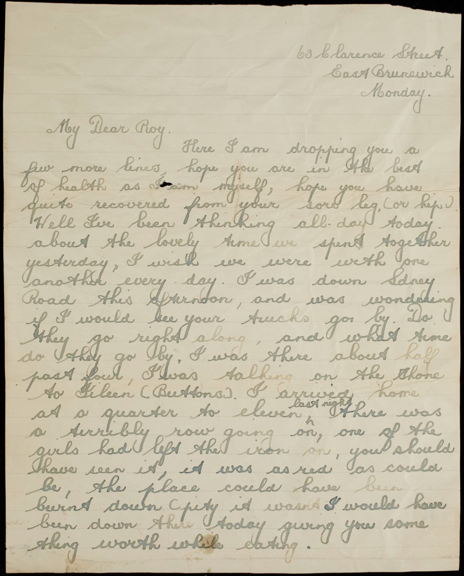 63 Clarence Street.
East Brunswick
Monday.
My Dear Roy.
Here I am dropping you a
few more lines, hope you are in the best
of health as I am myself, hope you have
quite recovered from your sore leg, (or hip.)
Well I've been thinking all day today
about the lovely time we spent together
yesterday, I wish we were with one
another every day. I was down Sdney
Road this afternoon, and was wondering
if I would see your trucks go by. Do
they go right along, and what time
do they go by. I was there about half
past four, I was talking on the Phone
to Eileen (Buttons). I arrived home
at a quarter to eleven last night, there was
a terribly row going on, one of the
girls had left the iron on, you should
have seen it, it was as red as could
be, the place could have been
burnt down (pity it wasnt I would have
been down there today giving you some
thing worth while eating.